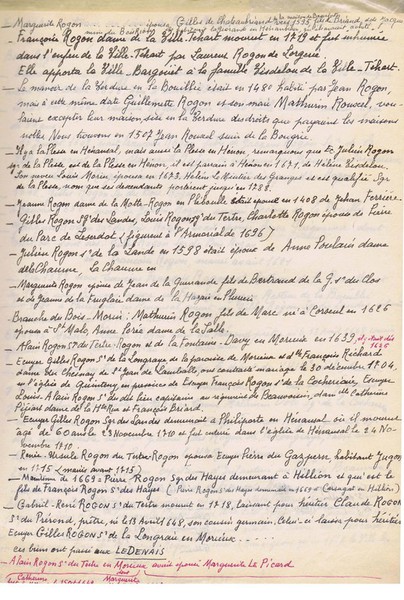 — Marguerite Rogon épousa Gilles de Chateaubriand
Françoise Rogon dame de la Ville-Téhart mourut en 1719 et fut inhumée
dans l'enfeu de la Ville-Téhart par Laurent Rogon de Lorgerie
Elle apporta la Ville-Bargouet à la famille Visdelou de la Ville-Téhart.
— Le manoir de la Perdue en la Bouillie était en 1480 habité par Jean Rogon,
mais à cette même date Guillemette Rogon et son mari Mathurin Rouxel, vou-
laient excepter leur maison sise en la Perdue des droits que payaient les maisons
nobles. Nous trouvons en 1507 Jean Rouxel sieur de la Bougrie
— Il y a la Plesse en Hénansal, mais aussi la Plesse en Hénon, remarquons que Ec. Julien Rogon
sgr de la Plesse est de la Plesse en Hénon, il est parrain à Hénon en 1671, de Hélène Visdelou.
Son neveu Louis Marin, épousa en 1673, Hélène le Mintier des Granges et est qualifié Sgr
de la Plesse, nom que ses descendants portèrent jusqu'en 1788.
— Jeanne Rogon dame de la Motte-Rogon en Pléboulle était épouse en 1408 de Jehan Ferrière.
— Gilles Rogon Sgr des Landes, Louis Rogon Sgr du Tertre, Charlotte Rogon épouse de Pierre
du Parc de Leserdot (figurent à l'Armorial de 1696)
— Julien Rogon Sr de la Lande en 1598 était époux de Anne Poulain dame
de la Chaume, La Chaume en
— Marguerite Rogon épouse de Jean de la Guerande fils de Bertrand de la G. sr du Clos
et de Jeanne de la Fruglaie dame de la Hazaie en Plenée
— Branche du Bois-Morin: Mathurin Rogon fils de Marc né à Corseul en 1626
épousa à St Malo Anne Porée dame de la Salle.
— Alain Rogon Sr du Tertre-Rogon et de la Fontaine-Davy en Morieux en 1639, et y était dès
1625
— Ecuyer Gilles Rogon Sr de la Longraye de la paroisse de Morieux et dlle François Richard
dame du Chesnay de St Jean de Lamballe, ont contracté mariage le 30 décembre 1704,
en l'église de Quintenic, en présence de Ecuyer François Rogon Sr de la Cocheriais, Ecuyer
Louis-Alain Rogon Sr du dit lieu capitaine en régiment de Beauvoisin, dame Catherine
— Ecuyer Gilles Rogon Sgr des Landes demeurant à Philiporte en Hénansal où il mourut
âgé de 60 ans le 23 Novembre 1710 et fut enterré dans l'église de Hénansal le 24 No-
vembre 1710.
— Renée-Ursule Rogon du Tertre-Rogon épousa Ecuyer Pierre du Gazpern, habitant Jugon
en 1715 (mariés avant 1715)
— Mention de 1669 : Pierre Rogon Sgr des Hayes demeurant à Hillion et qui est le
fils de François Rogon Sr des Hayes
— Gabriel-René ROGON Sr du Tertre mourut en 1718, laissant pour héritier Claude ROGON
prêtre, son cousin germain. Celui-ci laissa pour héritier
Ecuyer Gilles ROGON Sr de la Longraie en Morieux.....
ces biens ont passé aux LE DENAIS
Alain Rogon Sr du Tertre en Morieux avait épousé Marguerite Le Picard
Catherine, Marguerite